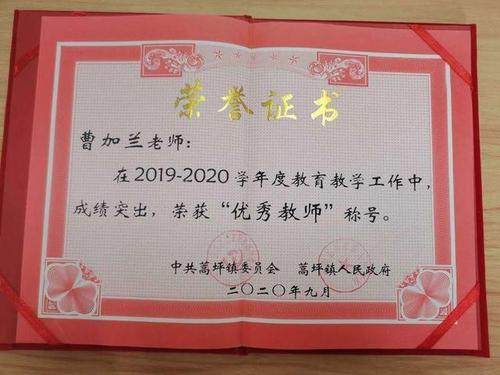 荣誉证书
曹加兰老师:
在2019-2020学年度教育教学工作中,
成绩突出，荣获“优秀教师”称号。
中共蒿坪镇委员会 蒿坪镇人民政府
二〇二〇年九月